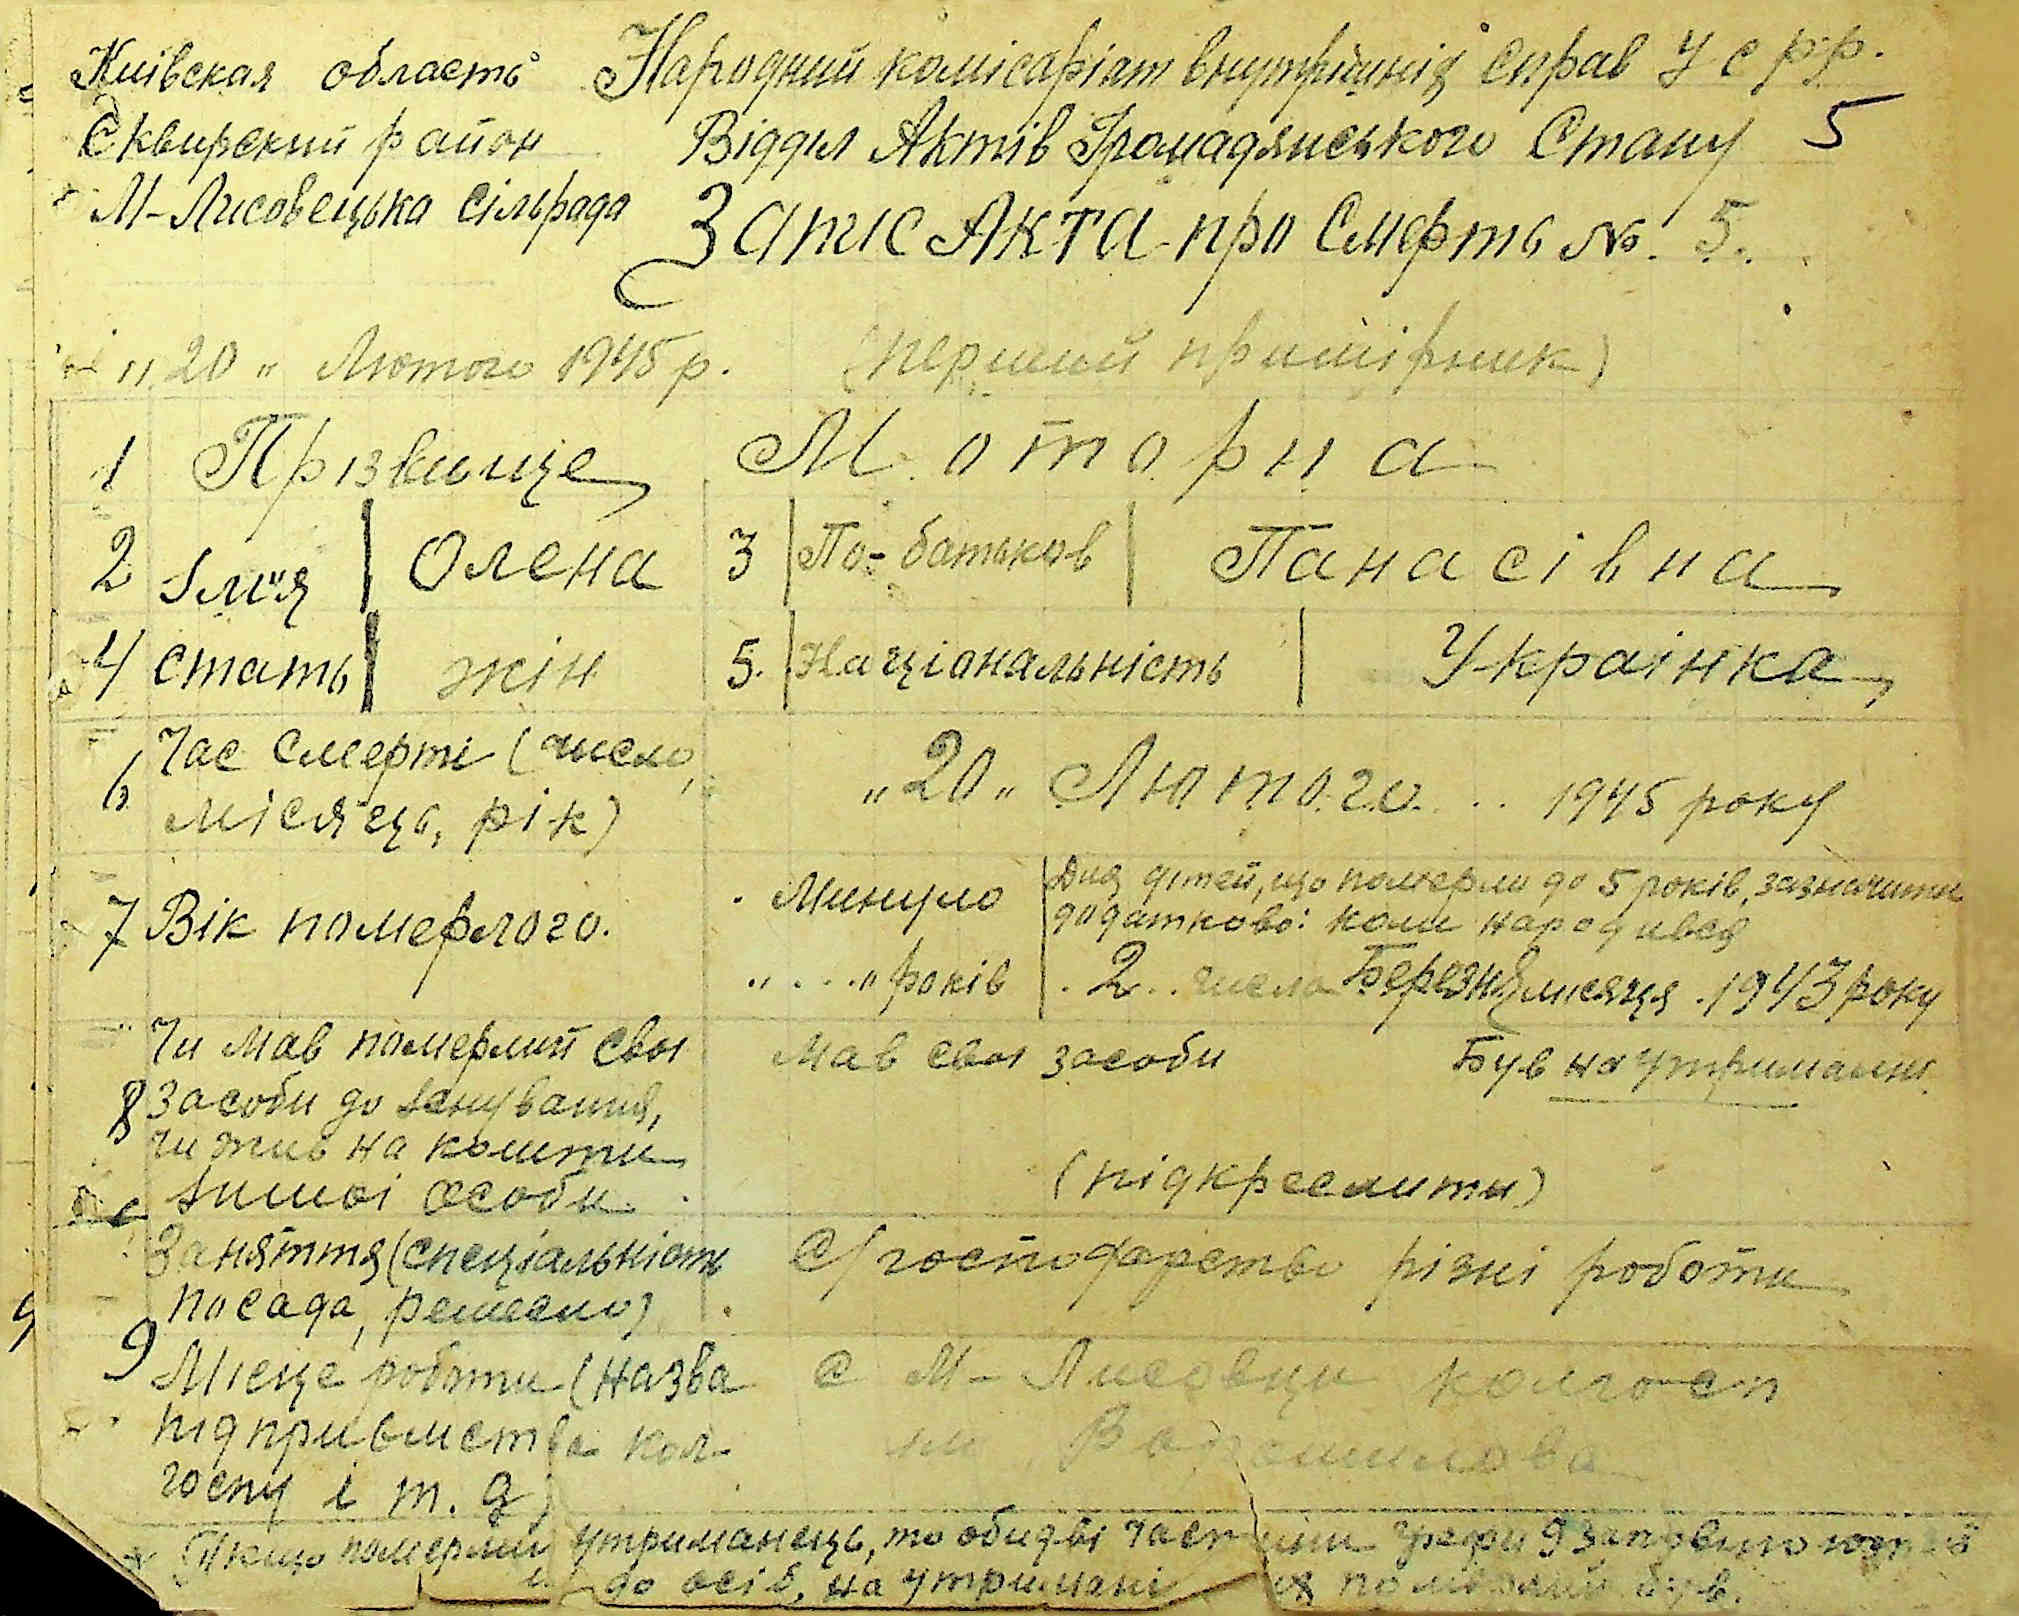 Київская область Народний комісаріат внутрішніх справ У с р р.
Сквирский район Відділ Актів Громадянського Стану 5
М-Лисовецька сільрада Запис Акта про Смерть № 5.
"20" Лютого 1945 р. (перший примірник)
1 Прізвище Моторна
2 Ім"я Олена 3 По-батьков Панасівна
4 стать жін 5. Національність Украінка
6 Час смерті (число, "20" Лютого 1945 року
місяць, рік)
7 Вік померлого. Минуло Для дітей, що померли до 5 років, зазначити
додатково: коли народився
" . . . " років . 2 . числа Березня місяця . 1943 року
Чи мав померлий свої мав свої засоби Був на утриманні
8 засоби до існування,
чи жив на кошти
іншої особи (підкреслити)
Заняття (спеціальність С/господарство різні роботи
посада, ремесло)
9 Місце роботи (назва с М-Лисовци колгосп
підприємства кол- ім. Ворошилова
госпу і т. д)
Якщо померлий утриманець, то обидві частини графи 9 заповнюють
до осіб, на утримані яких померлий був.